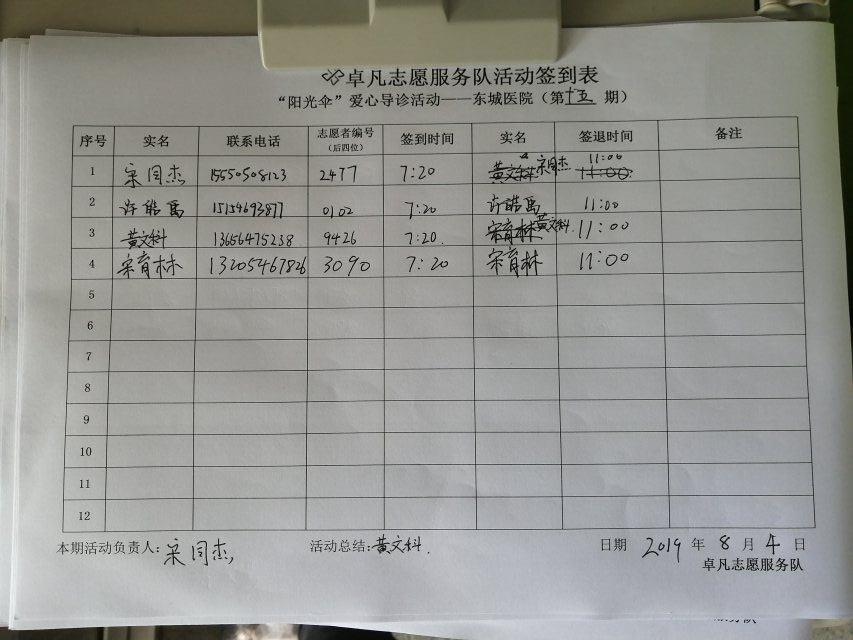 卓凡志愿服务队活动签到表
“阳光伞”爱心导诊活动——东城医院（第十五期）
序号 实名 联系电话 志愿者编号（后四位） 签到时间 实名 签退时间 备注
1 宋同杰 15550508123 2477 7:20 黄文科 宋同杰 11:00 11:00
2 许皓禹 15154693877 0102 7:20 许皓禹 11:00
3 黄文科 13656475238 9426 7:20. 宋育林 黄文科. 11:00
4 宋育林 13205467826 3090 7:20 宋育林 11:00
5
6
7
8
9
10
11
12
本期活动负责人：宋同杰 活动总结：黄文科. 日期 2019 年 8 月 4 日
卓凡志愿服务队